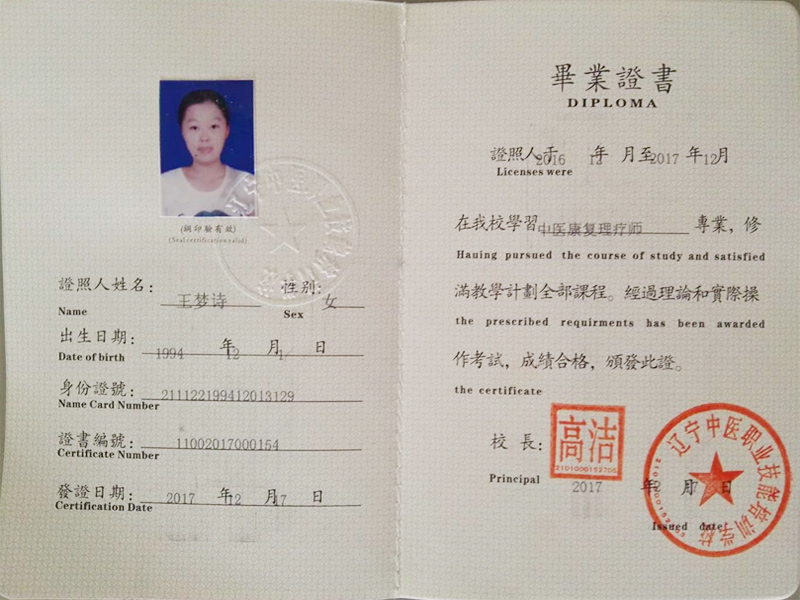 (鋼印驗有效)
(Seal certification valid)
證照人姓名:
王梦诗
性别:
女
Name
Sex
出生日期:
1994 年 12 月 1 日
Date of birth
身份證號:
211122199412013129
Name Card Number
證書編號:
11002017000154
Certificate Number
發證日期:
2017 年 12 月 17 日
Certification Date
畢業證書
DIPLOMA
證照人于2016 年 月至2017 年12月
Licenses were
在我校學習中医康复理疗师 專業,修
Hauing pursued the course of study and satisfied
滿教學計劃全部課程。經過理論和實際操
the prescribed requirments has been awarded
作考試,成績合格,頒發此證。
the certificate
校長:
高洁
2101000152705
Principal
2017 年 月 日
Issued date
辽宁中医职业技能培训学校